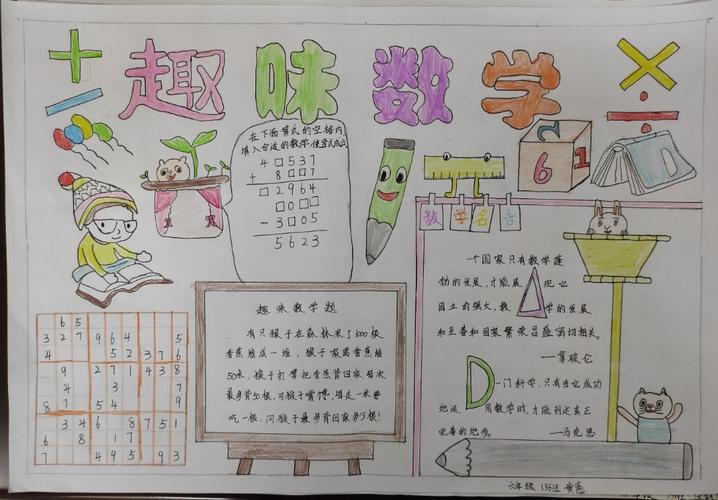 趣味数学
+
-
×
÷
在下面算式的空格内
填入合适的数学使算式成立
4□537
+ 8□□7
□2964
□0□□
-3□05
5623
2
6 1
数学名言
趣味数学题
有只猴子在森林采了1000根
香蕉堆成一堆，猴子家离香蕉堆
50米，猴子打算把香蕉背回家，每次
最多背50根，可猴子嘴馋，每走一米要
吃一根，问猴子最多背回家多少根！
一个国家只有数学蓬
勃的发展，才能展现它
国立的强大，数学的发展
和至善和国家繁荣昌盛密切相关。
——拿破仑
一门科学，只有当它成功
地运用数学时，才能到达真正
完善的地步。
——马克思
6 5
3 2 7 9 6 4 5
4 5 2 3 7 6
9 2 7 1 4 3 8
4 3 7
8 7 5 4 9
3 4 6 8 7 5 1
6 8 1 7
7 4 9 5 9 3
六年级 135班